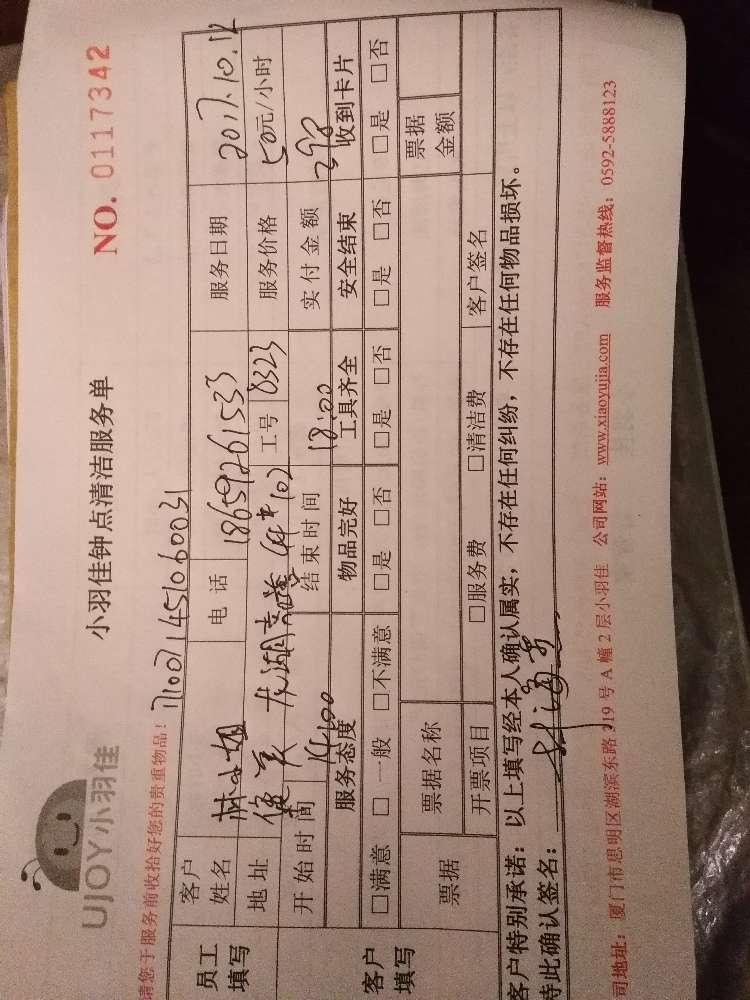 UJOY小羽佳
小羽佳钟点清洁服务单
NO. 0117342
请您于服务前收拾好您的贵重物品！
1710071451060031
员工填写 客户姓名 林小姐 电话 18659261533 服务日期 2017.10.12
地址 龙湖嘉 102 工号 0323 服务价格 50元/小时
开始时间 14:00 结束时间 18:00 实付金额 298
客户填写 服务态度 物品完好 工具齐全 安全结束 收到卡片
□满意 □一般 □不满意 □是 □否 □是 □否 □是 □否 □是 □否
票据 票据名称 票据金额
开票项目 □服务费 □清洁费 客户签名
客户特别承诺：以上填写经本人确认属实，不存在任何纠纷，不存在任何物品损坏。
特此确认签名：
司地址：厦门市思明区湖滨东路319号A幢2层小羽佳 公司网站：www.xiaoyujia.com 服务监督热线：0592-5888123